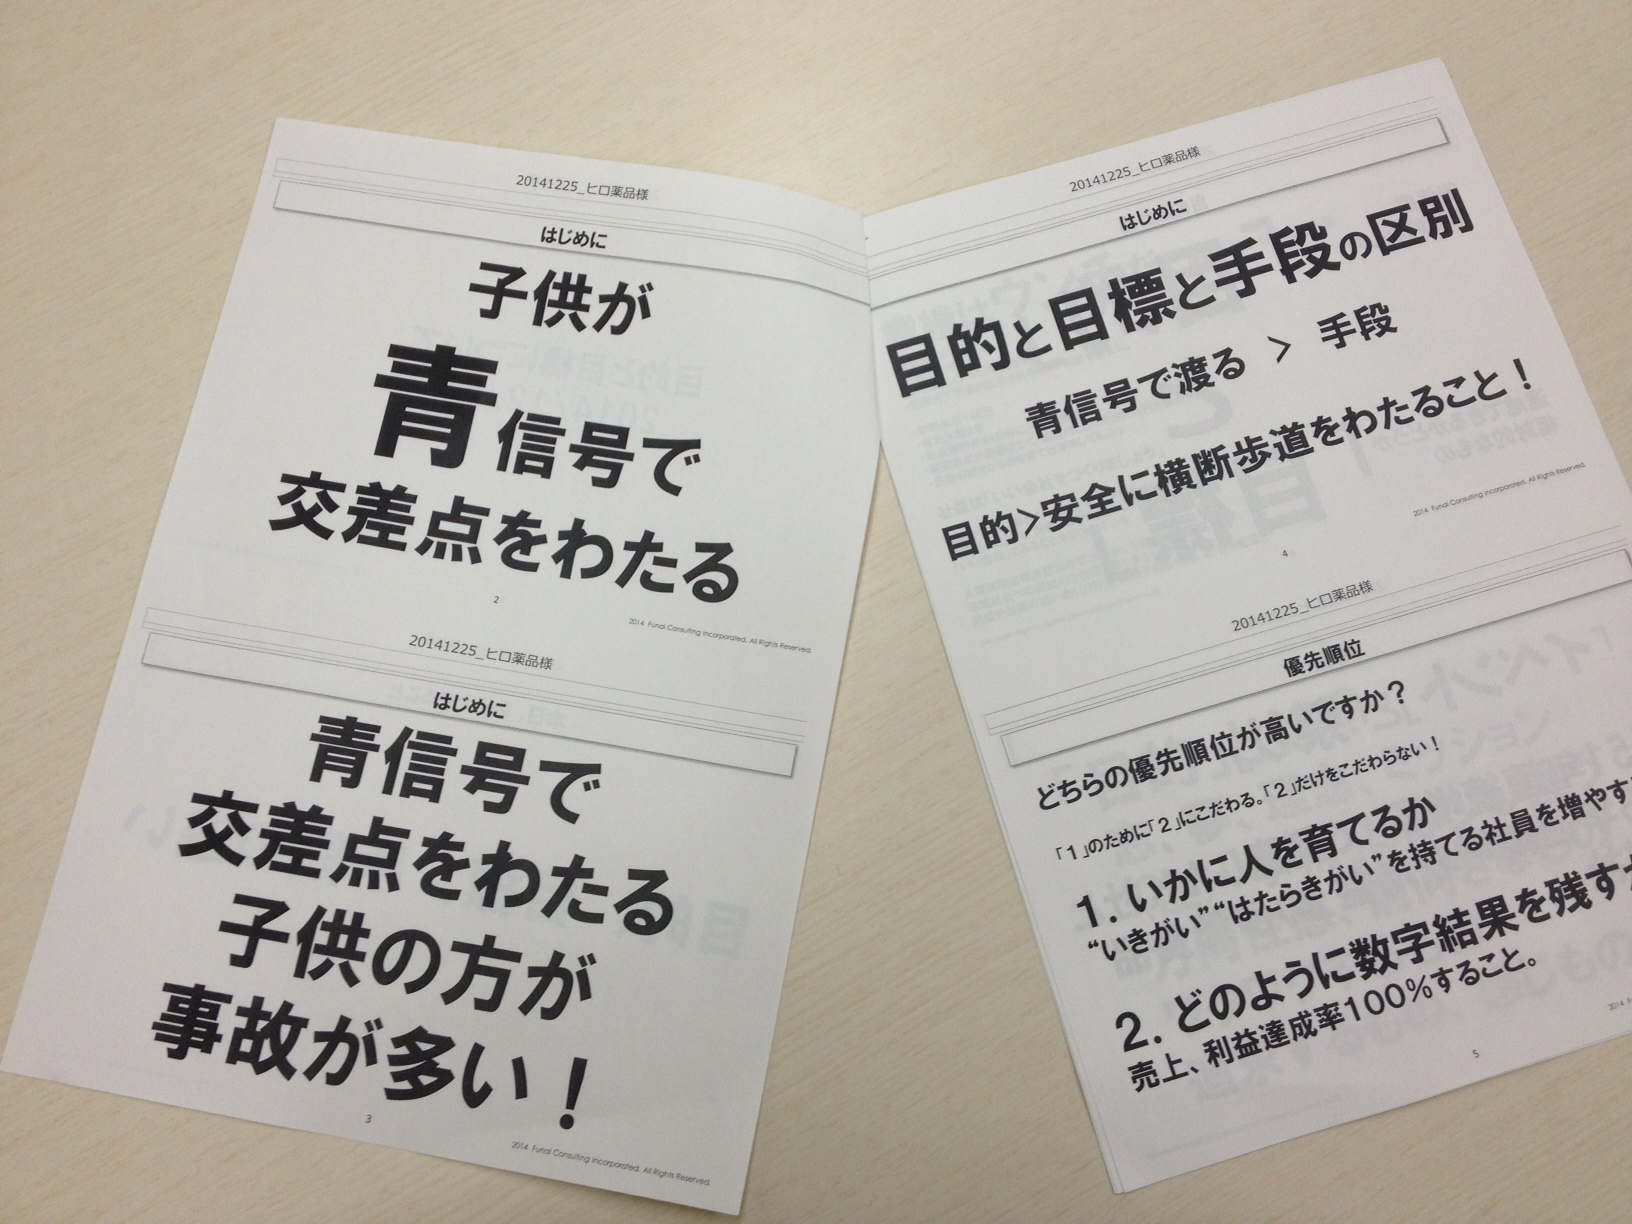 20141225_ヒロ薬品様
はじめに
子供が
青信号で
交差点をわたる
2
2014 Funai Consulting Incorporated. All Rights Reserved.
20141225_ヒロ薬品様
はじめに
青信号で
交差点をわたる
子供の方が
事故が多い！
3
2014 Funai Consulting Incorporated. All Rights Reserved.
20141225_ヒロ薬品様
はじめに
目的と目標と手段の区別
青信号で渡る > 手段
目的>安全に横断歩道をわたること！
2014 Funai Consulting Incorporated. All Rights Reserved.
4
20141225_ヒロ薬品様
優先順位
どちらの優先順位が高いですか？
「1」のために「2」にこだわる。「2」だけをこだわらない！
1. いかに人を育てるか
“いきがい”“はたらきがい”を持てる社員を増やす
2. どのように数字結果を残す
売上、利益達成率100％すること。
2014
5